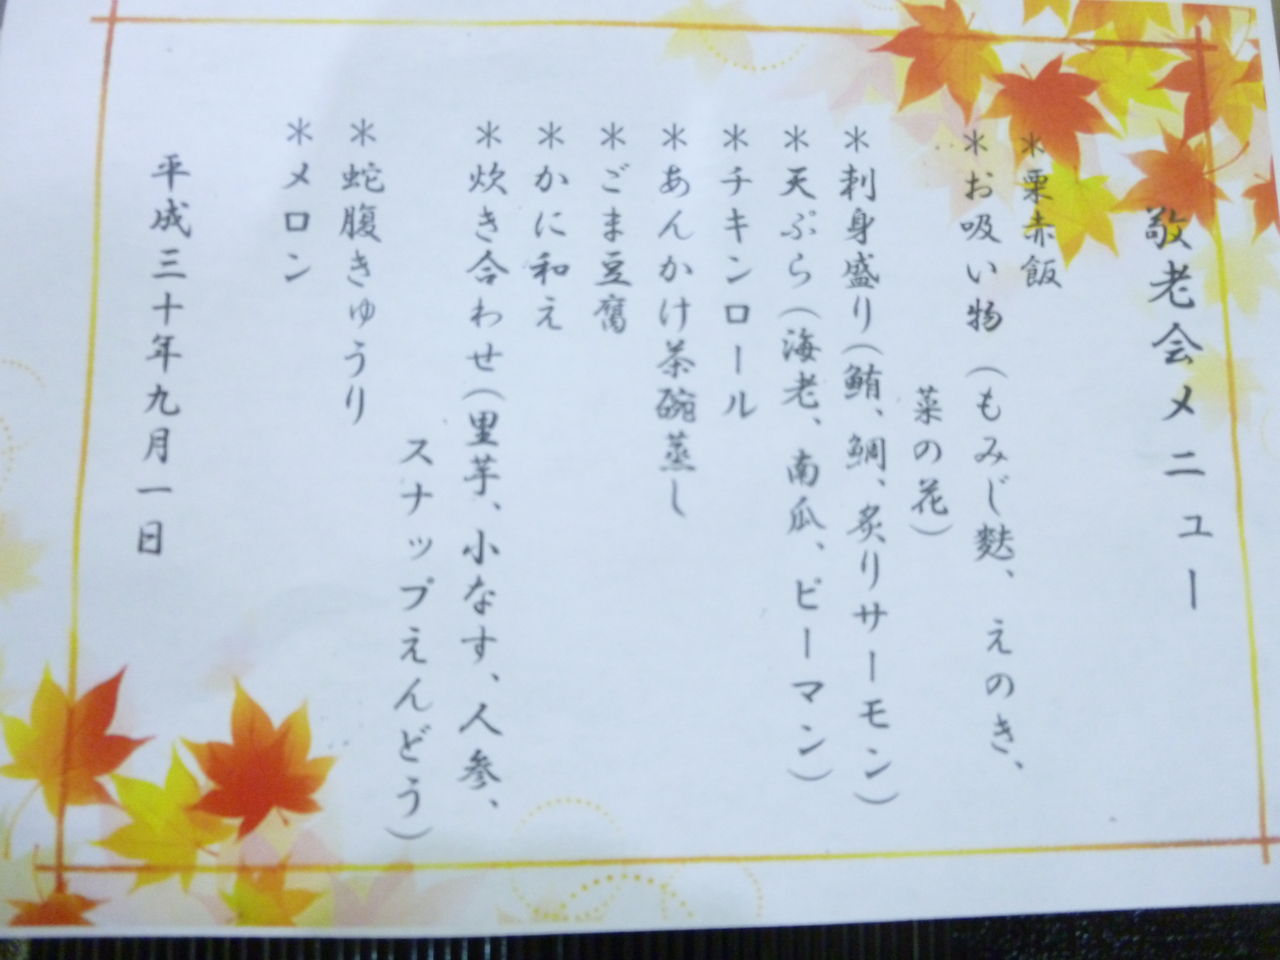 敬老会メニュー
＊栗赤飯
＊お吸い物（もみじ麩、えのき、
菜の花）
＊刺身盛り（鮪、鯛、炙りサーモン）
＊天ぷら（海老、南瓜、ピーマン）
＊チキンロール
＊あんかけ茶碗蒸し
＊ごま豆腐
＊かに和え
＊炊き合わせ（里芋、小なす、人参、
スナップえんどう）
＊蛇腹きゅうり
＊メロン
平成三十年九月一日